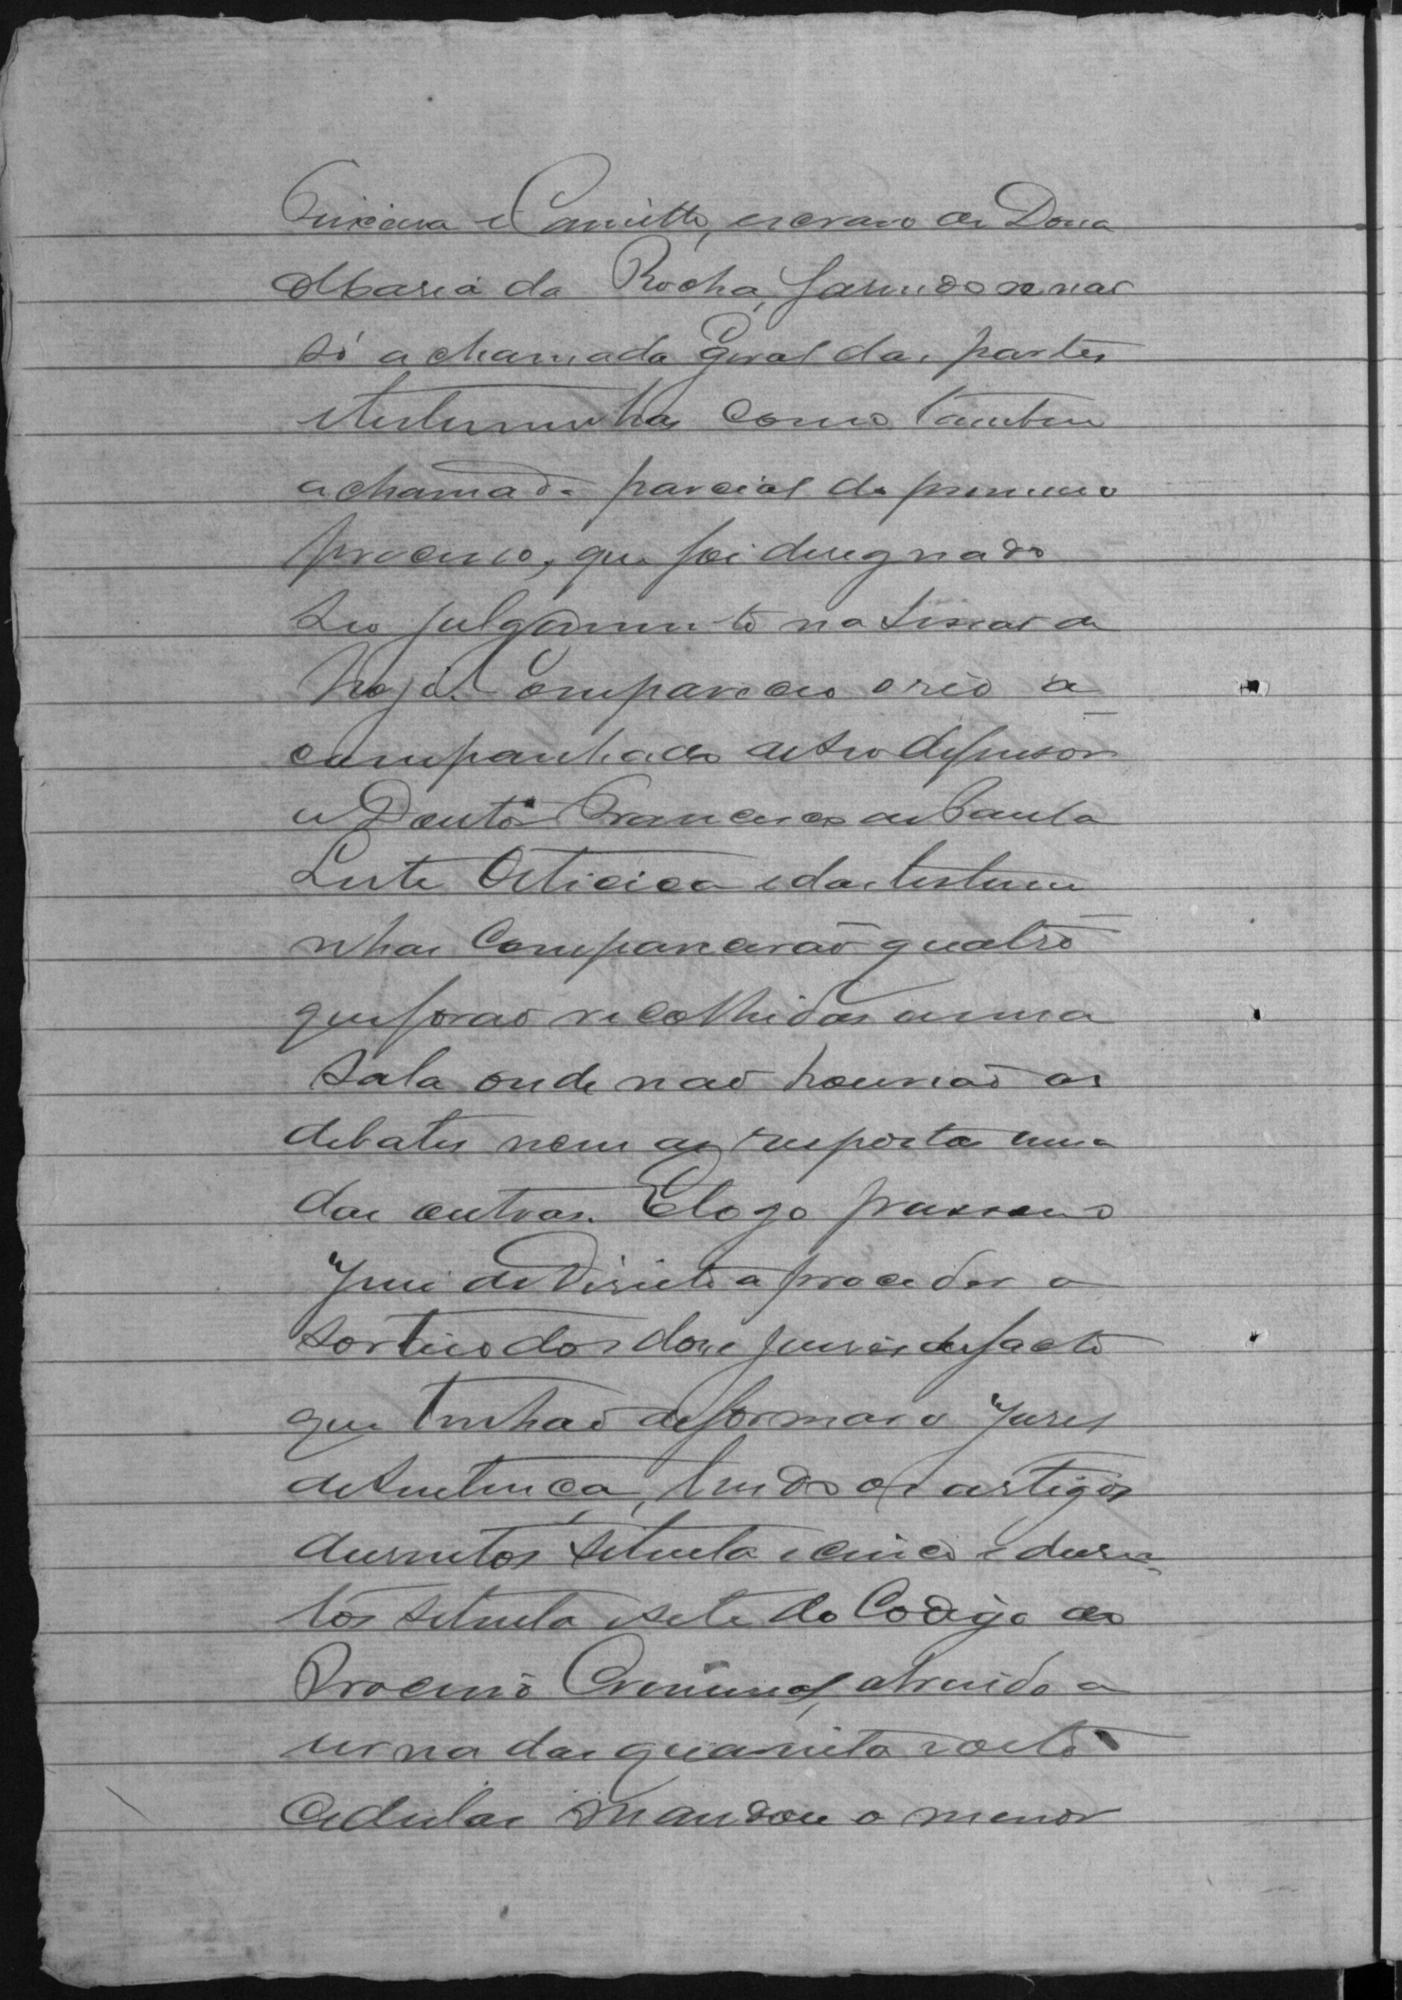 Teixeira e Camillo, escravo de Dona
Maria da Rocha, fasendo se não
só a chamada Geral das partes
e testemunhas como tambem
a chamada parcial do primeiro
processo, que foi designado
seo julgamento na sessão de
hoje. Compareceo o réo a
companhado de seo defensor
o Doutor Francisco de Paula
Leite Oiticica e das testemu
nhas comparecerão quatro
que forão recolhidas a uma
sala onde não houvião os
debates nem as respostas umas
das outras. E logo passou o
Juis de Direito a proceder o
sorteio dos dose juises de facto
que tinhão de formar o Jury
de Sentença, lendo os artigos
dusentos setenta e cinco e dusen
tos setenta e sete do Codigo do
Processo Criminal, abrindo a
urna das quarenta e oito
cedulas mandou o menor